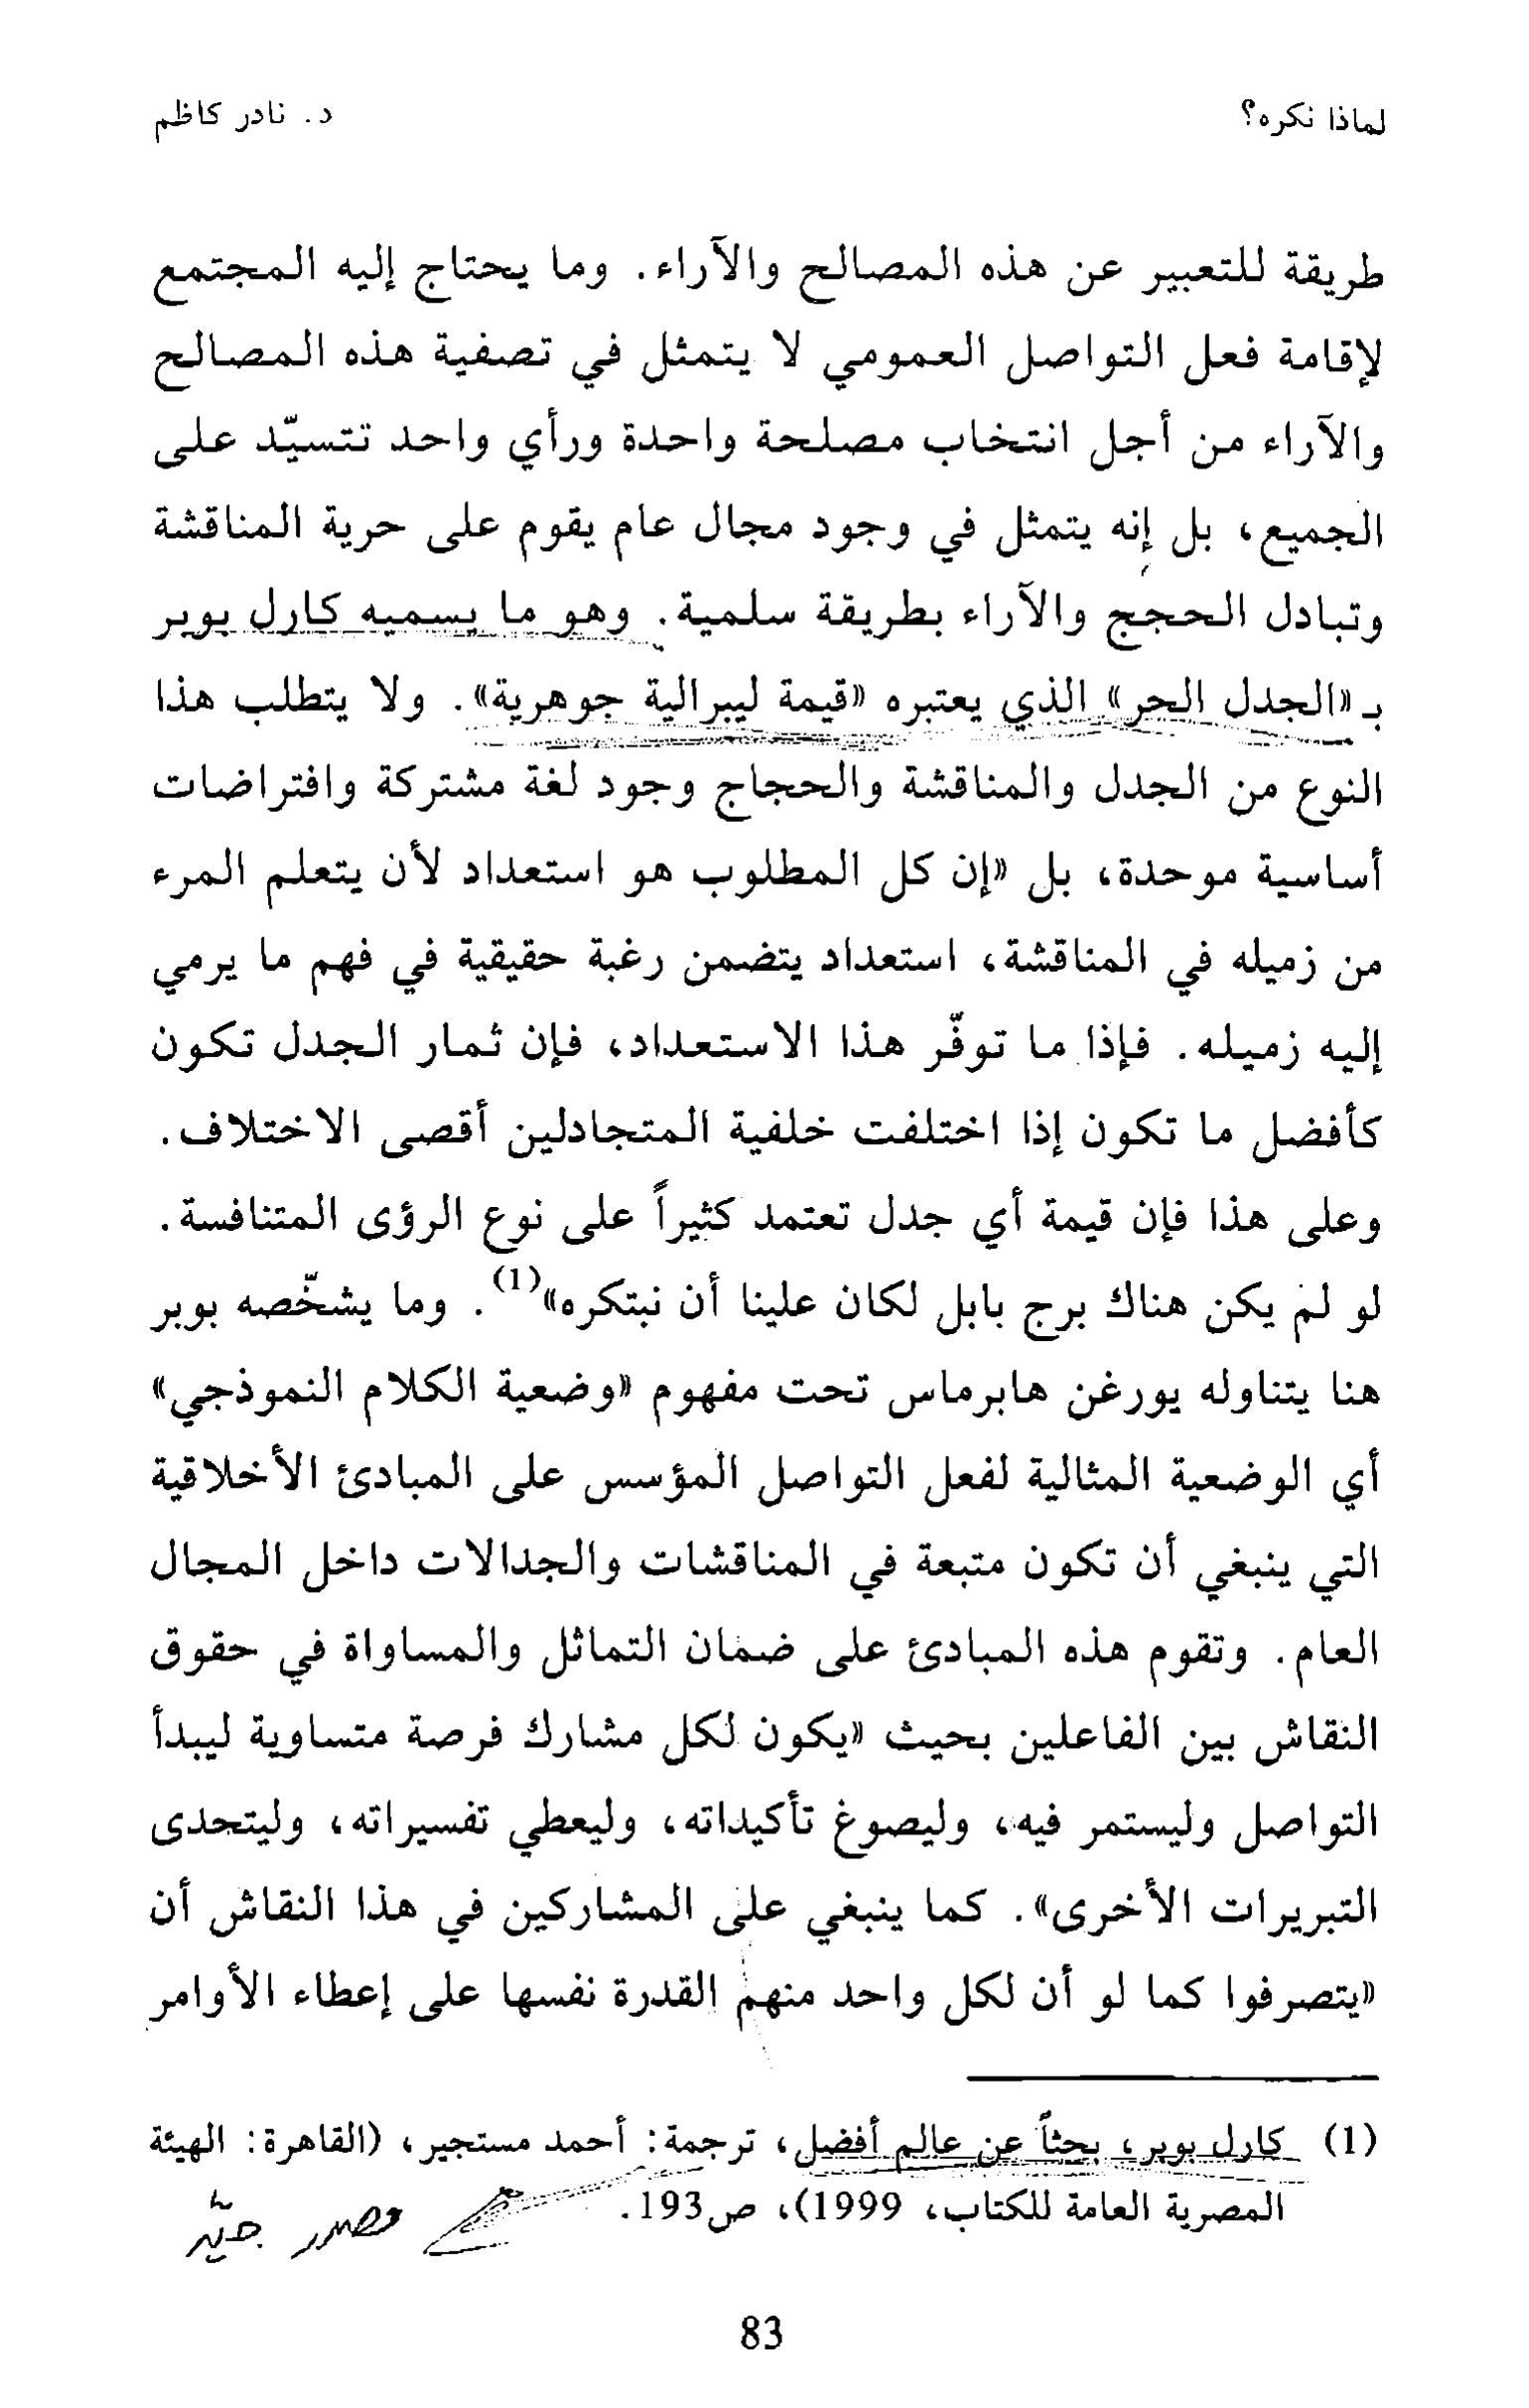 لماذا نكره؟ د. نادر كاظم
طريقة للتعبير عن هذه المصالح والآراء. وما يحتاج إليه المجتمع
لإقامة فعل التواصل العمومي لا يتمثل في تصفية هذه المصالح
والآراء من أجل انتخاب مصلحة واحدة ورأي واحد تتسيّد على
الجميع، بل إنه يتمثل في وجود مجال عام يقوم على حرية المناقشة
وتبادل الحجج والآراء بطريقة سلمية. وهو ما يسميه كارل بوبر
بـ «الجدل الحر» الذي يعتبره «قيمة ليبرالية جوهرية». ولا يتطلب هذا
النوع من الجدل والمناقشة والحجاج وجود لغة مشتركة وافتراضات
أساسية موحدة، بل «إن كل المطلوب هو استعداد لأن يتعلم المرء
من زميله في المناقشة، استعداد يتضمن رغبة حقيقية في فهم ما يرمي
إليه زميله. فإذا ما توفّر هذا الاستعداد، فإن ثمار الجدل تكون
كأفضل ما تكون إذا اختلفت خلفية المتجادلين أقصى الاختلاف.
وعلى هذا فإن قيمة أي جدل تعتمد كثيراً على نوع الرؤى المتنافسة.
لو لم يكن هناك برج بابل لكان علينا أن نبتكره»(1). وما يشخّصه بوبر
هنا يتناوله يورغن هابرماس تحت مفهوم «وضعية الكلام النموذجي»
أي الوضعية المثالية لفعل التواصل المؤسس على المبادئ الأخلاقية
التي ينبغي أن تكون متبعة في المناقشات والجدالات داخل المجال
العام. وتقوم هذه المبادئ على ضمان التماثل والمساواة في حقوق
النقاش بين الفاعلين بحيث «يكون لكل مشارك فرصة متساوية ليبدأ
التواصل وليستمر فيه، وليصوغ تأكيداته، وليعطي تفسيراته، وليتحدى
التبريرات الأخرى». كما ينبغي على المشاركين في هذا النقاش أن
«يتصرفوا كما لو أن لكل واحد منهم القدرة نفسها على إعطاء الأوامر
(1) كارل بوبر، بحثاً عن عالم أفضل، ترجمة: أحمد مستجير، (القاهرة: الهيئة
المصرية العامة للكتاب، 1999)، ص193.
مصدر
83